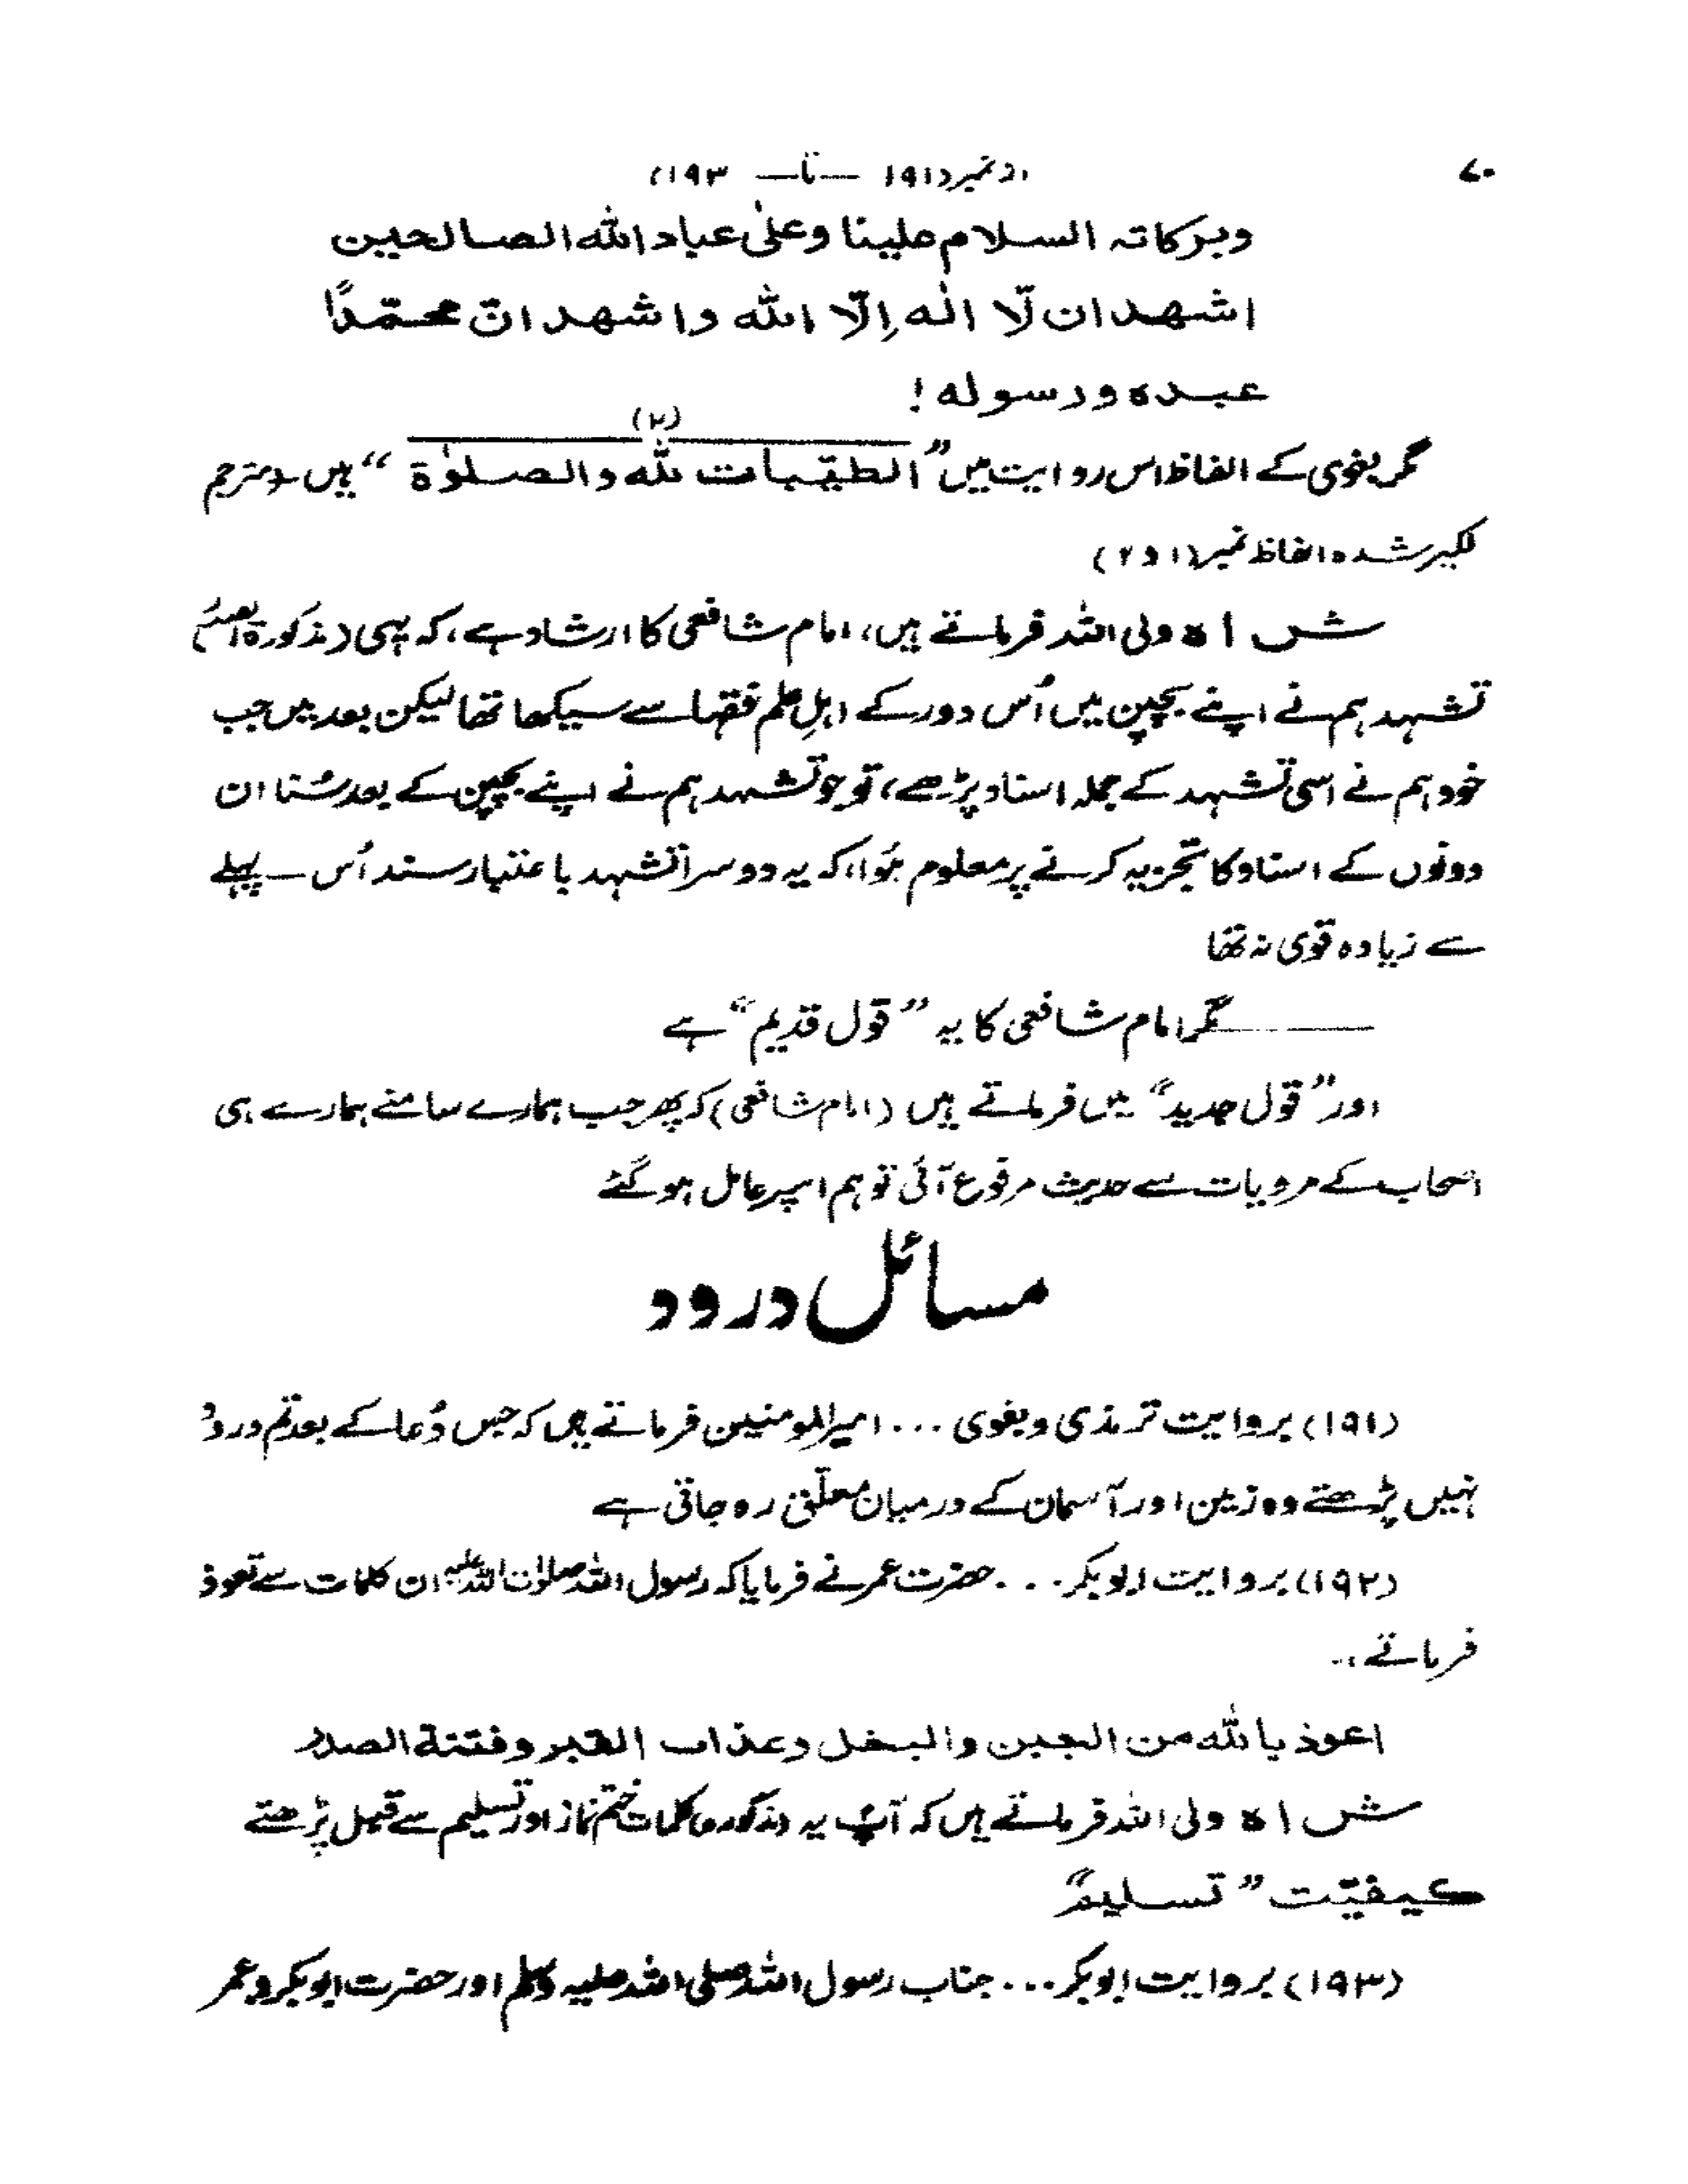 ۷۰
(نمبر ۱۹۱ — تا — ۱۹۳)
وبرکاته السلام علینا وعلیٰ عباد الله الصالحین
اشهد ان لّا الٰه اِلّا الله واشهد انّ محمّدًا
عبده ورسوله!
(۲)
مگر بغوی کے الفاظ اس روایت میں ”الطیّبات لله والصلوٰة“ ہیں (مترجم
لکیر شدہ الفاظ نمبر (۱ و ۲)
شاہ ولی اللہ فرماتے ہیں، امام شافعی کا ارشاد ہے، کہ یہی (مذکورۃ
تشہد ہم نے اپنے بچپن میں اُس دور کے اہلِ علم فقہا سے سیکھا تھا لیکن بعد میں جب
خود ہم نے اسی تشہد کے جملہ اسناد پڑھے، تو جو تشہد ہم نے اپنے بچپن کے بعد سُنا ان
دونوں کے اسناد کا تجزیہ کرنے پر معلوم ہُوا، کہ یہ دوسرا تشہد با عتبار سند اُس پہلے
سے زیادہ قوی نہ تھا
——— مگر امام شافعی کا یہ ”قول قدیم“ ہے
اور ”قول جدید“ میں فرماتے ہیں (امام شافعی) کہ پھر جب ہمارے سامنے ہمارے ہی
اصحاب کے مرویات سے حدیث مرفوع آئی تو ہم اسپر عامل ہو گئے
مسائل درود
(۱۹۱) بروایت ترمذی و بغوی ... امیر المومنین فرماتے ہیں کہ جس دُعا کے بعد تم درود
نہیں پڑھتے وہ زمین اور آسمان کے درمیان معلّق رہ جاتی ہے
(۱۹۲) بروایت ابو بکر ... حضرت عمر نے فرمایا کہ رسول اللہ صلوٰت اللہ علیہ ان کلمات سے تعوذ
فرماتے :-
اعوذ بالله من الجبن والبخل وعذاب القبر وفتنة الصدر
شاہ ولی اللہ فرماتے ہیں کہ آپ یہ (مذکورہ) کلمات ختم نماز اور تسلیم سے قبل پڑھتے
کیفیّت ”تسلیم“
(۱۹۳) بروایت ابو بکر ... جناب رسول اللہ صلی اللہ علیہ وسلم اور حضرت ابو بکر و عمر